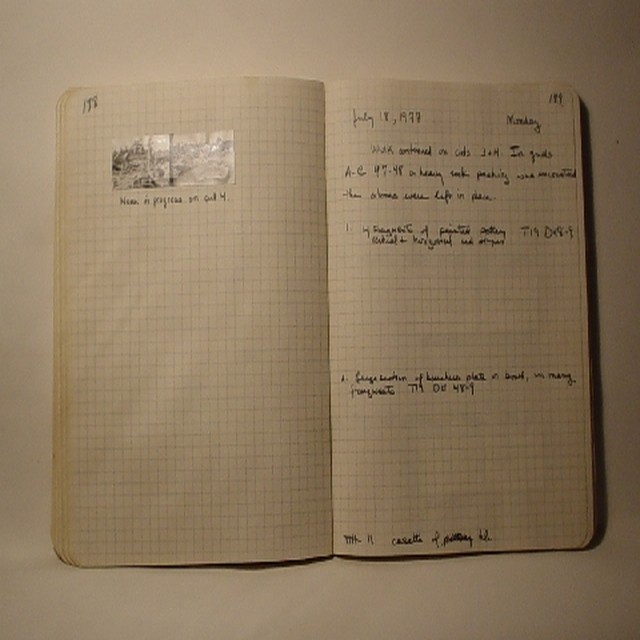 188
Work in progress on cut 4.
189
July 18, 1977 Monday
Work continued on cuts 3+4. In grids
A-C 47-48 a heavy rock packing was encountered
the stones were left in place.
1. 4 fragments of painted pottery T19 D48-9
vertical + horizontal red stripes
2. Large section of handleless plate or bowl, in many
fragments T19 DE 48-9
11 cassette of pottery